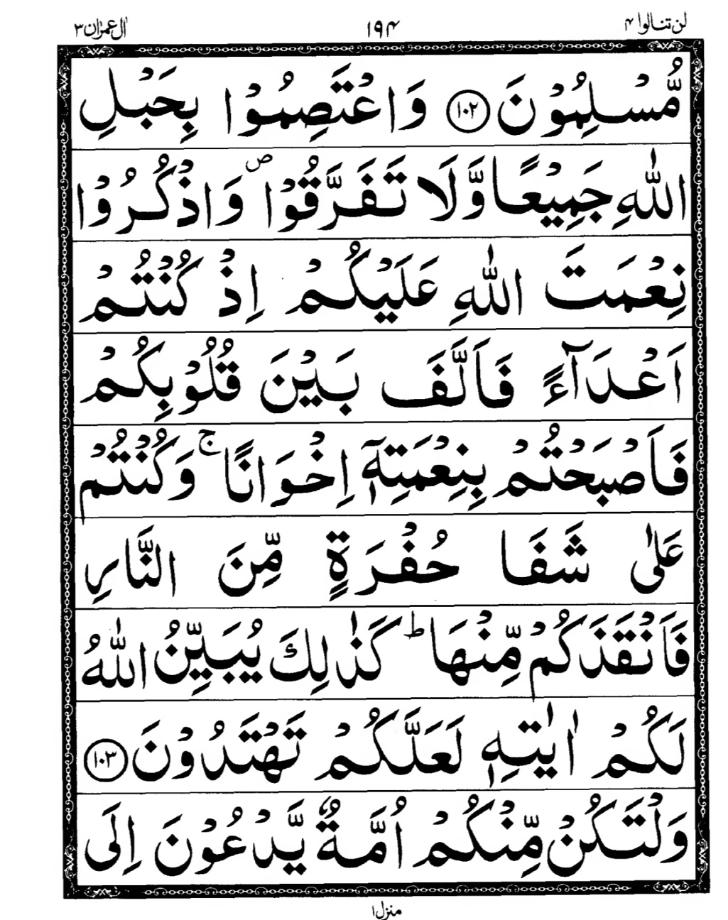 لن تنالوا ۴ ۱۹۴ اٰل عمرٰن ۳
مُّسْلِمُوْنَ ﴿۱۰۲﴾ وَاعْتَصِمُوْا بِحَبْلِ
اللّٰهِ جَمِيْعًا وَّلَا تَفَرَّقُوْا ۖ وَاذْكُرُوْا
نِعْمَتَ اللّٰهِ عَلَيْكُمْ اِذْ كُنْتُمْ
اَعْدَآءً فَاَلَّفَ بَيْنَ قُلُوْبِكُمْ
فَاَصْبَحْتُمْ بِنِعْمَتِهٖۤ اِخْوَانًا ۚ وَكُنْتُمْ
عَلٰى شَفَا حُفْرَةٍ مِّنَ النَّارِ
فَاَنْقَذَكُمْ مِّنْهَا ؕ كَذٰلِكَ يُبَيِّنُ اللّٰهُ
لَكُمْ اٰيٰتِهٖ لَعَلَّكُمْ تَهْتَدُوْنَ ﴿۱۰۳﴾
وَلْتَكُنْ مِّنْكُمْ اُمَّةٌ يَّدْعُوْنَ اِلَى
منزل ۱